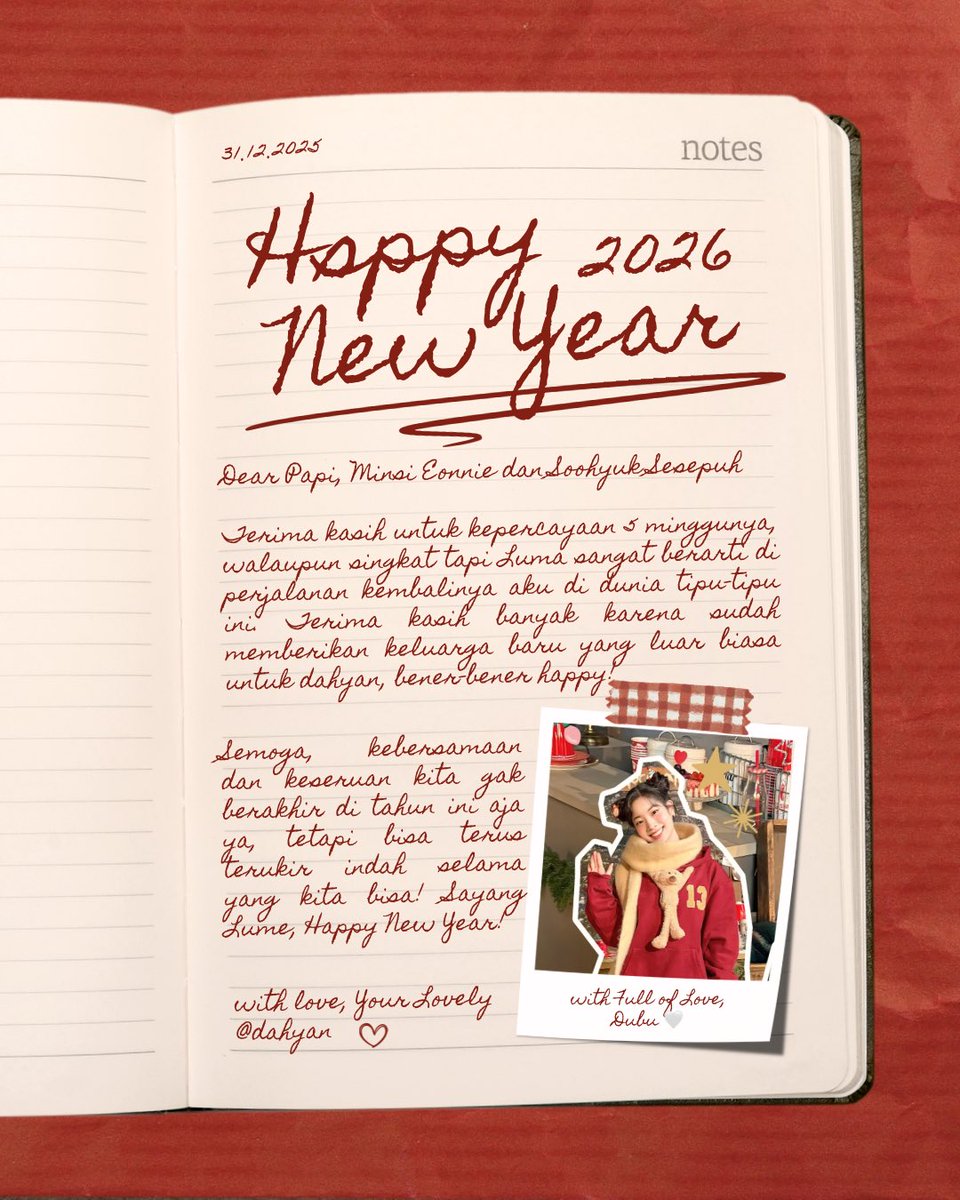 31.12.2025
notes
Happy 2026
New Year
Dear Papi, Minsi Eonnie dan Soohyuk Sesepuh
Terima kasih untuk kepercayaan 5 minggunya,
walaupun singkat tapi Luma sangat berarti di
perjalanan kembalinya aku di dunia tipu-tipu
ini. Terima kasih banyak karena sudah
memberikan keluarga baru yang luar biasa
untuk dahyan, bener-bener happy!
Semoga, kebersamaan
dan keseruan kita gak
berakhir di tahun ini aja
ya, tetapi bisa terus
terukir indah selama
yang kita bisa! Sayang
Lume, Happy New Year!
with love, Your Lovely
@dahyan
13
with Full of Love,
Dubu 🤍